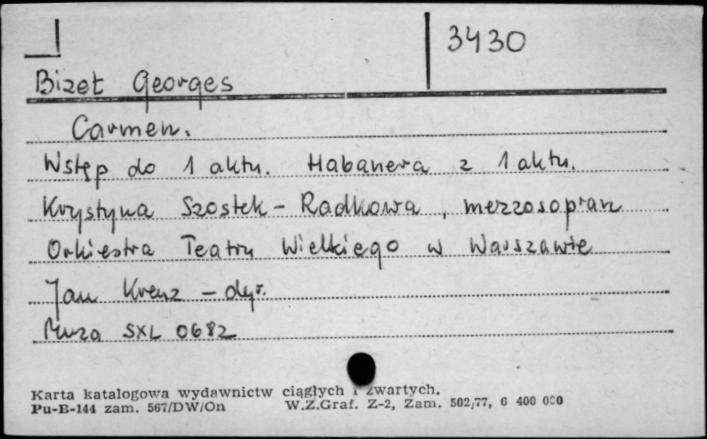 3430
Bizet Georges
Carmen.
Wstęp do 1 aktu. Habanera z 1 aktu.
Krystyna Szostek-Radkowa, mezzosopran
Orkiestra Teatru Wielkiego w Warszawie
Jan Krenz - dyr.
Muza SXL 0682
Karta katalogowa wydawnictw ciągłych i zwartych.
Pu-B-144 zam. 567/DW/On W.Z.Graf. Z-2, Zam. 502/77, 6 400 000